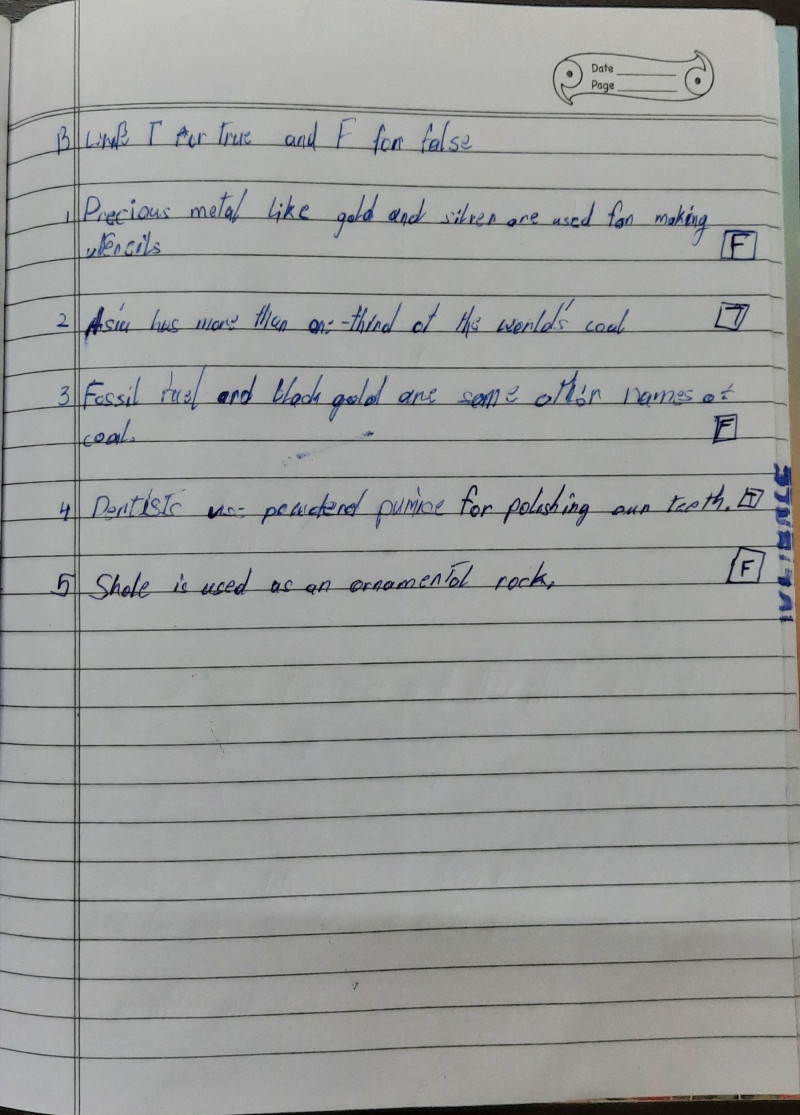 Date
Page
B Write T for True and F for false
1 Precious metal like gold and silver are used for making
utencils F
2 Asia has more than one-third of the world's coal T
3 Fossil fuel and black gold are some other names of
coal. F
4 Dentists use powdered pumice for polishing our teeth. T
5 Shale is used as an ornamental rock, F